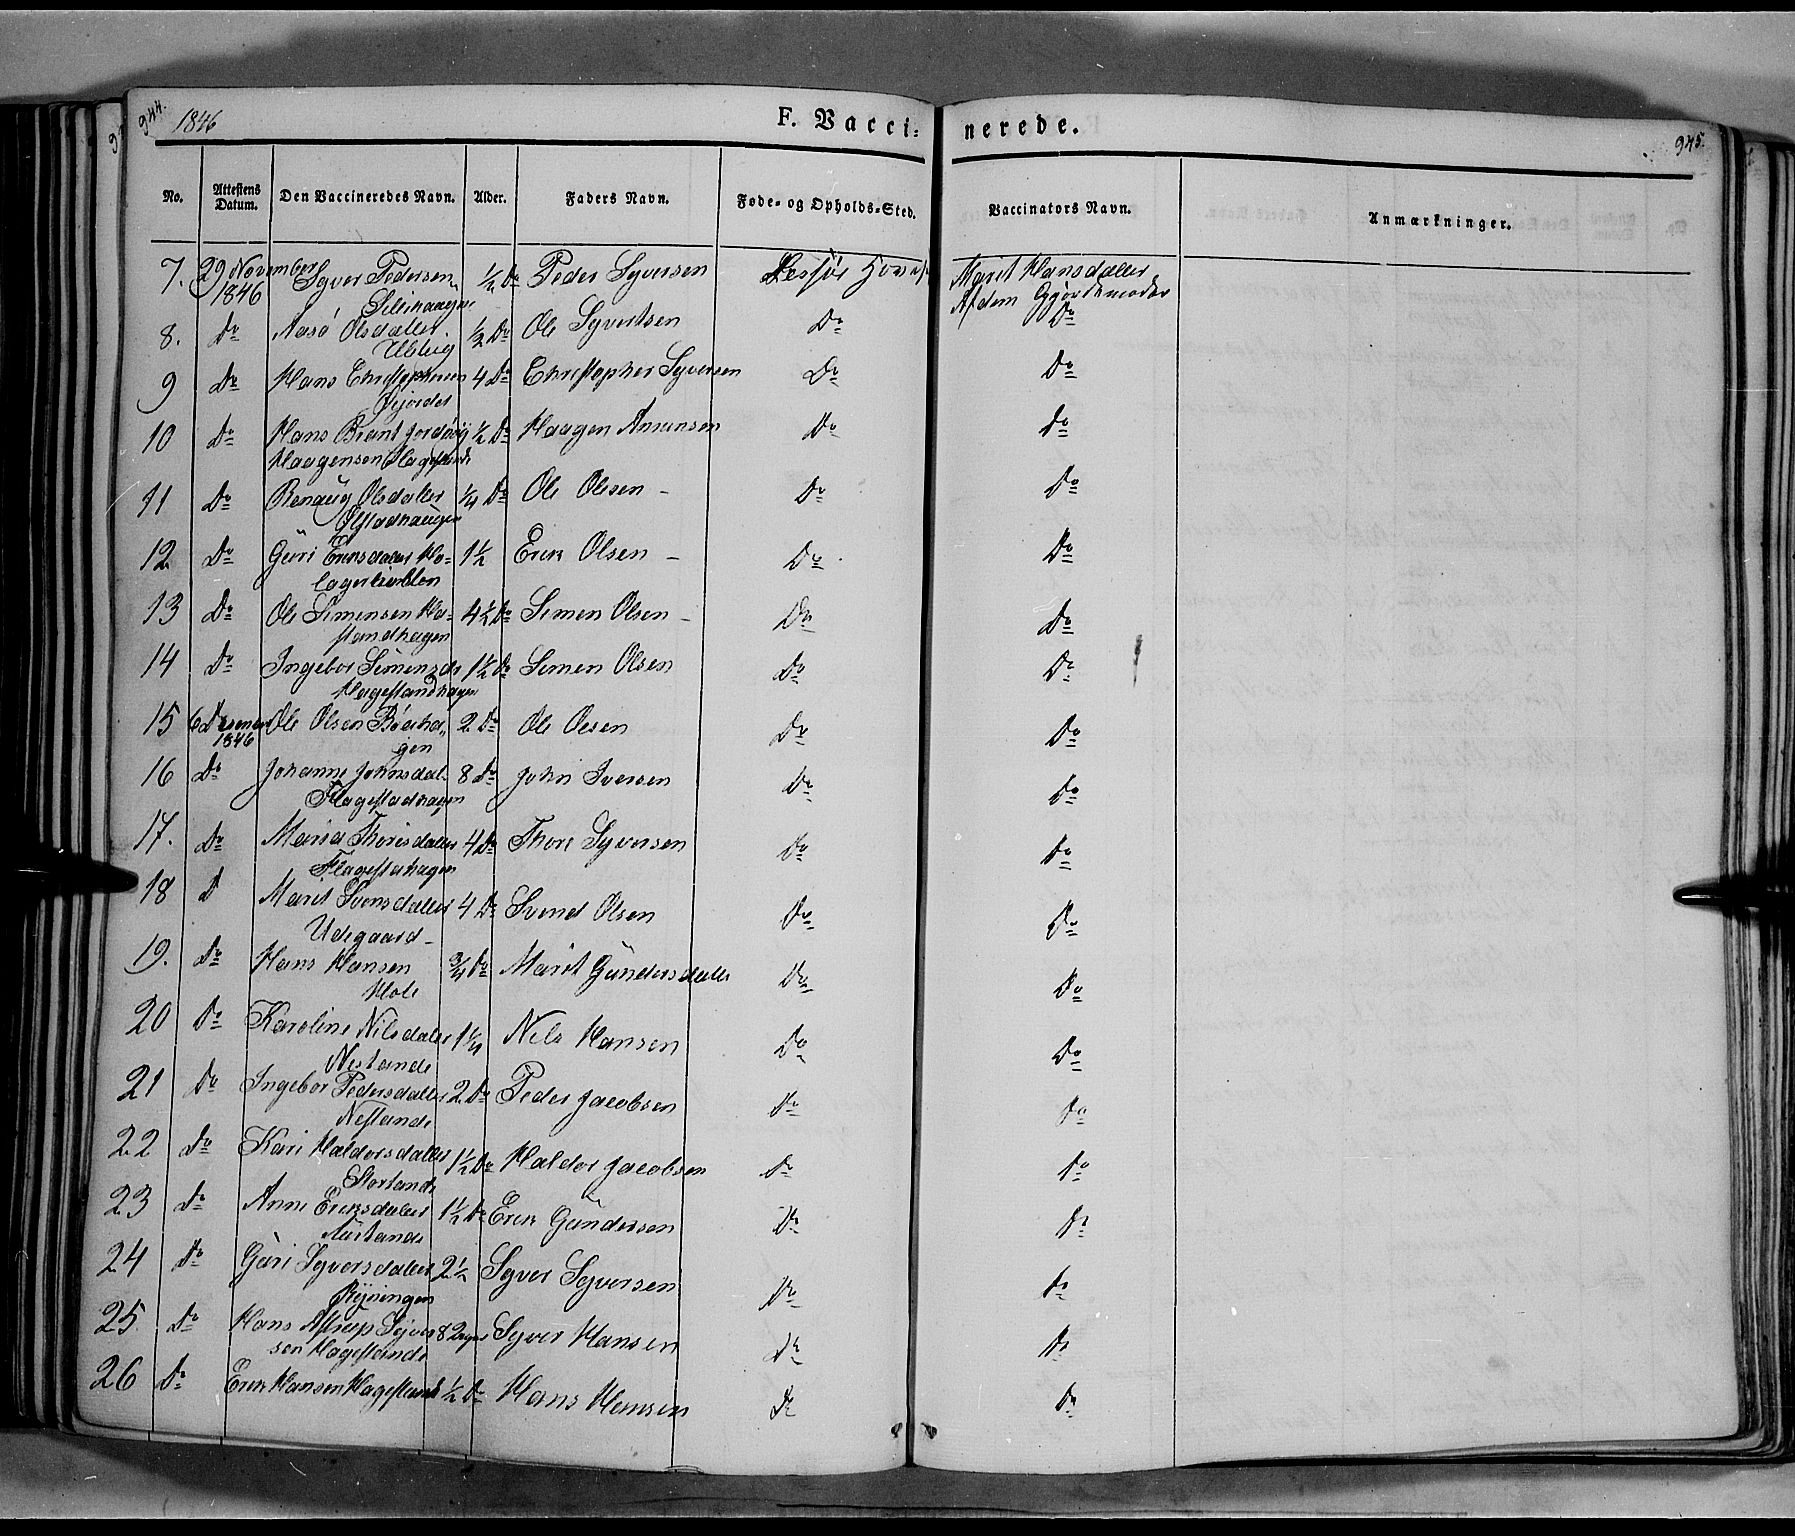 944.
1846
F. Vacci=
nerede.
945.
No. Attestens Datum. Den Vaccineredes Navn. Alder. Faders Navn. Føde- og Opholds-Sted. Vaccinators Navn. Anmærkninger.
7. 29 November Syver Pedersen ½ Do Peder Syversen Marit Hansdatter
1846
8. Do Olsdatter ½ Do Ole Syvertsen Do Do
9 Do Hans Christophersen 4 Do Christopher Syversen Do Do
10 Do Hans Brant ½ Do Haagen Amunsen Do Do
Haagensen
11 Do Renaug Olsdatter ¼ Do Ole Olsen - Do Do
12 Do Guri Eriksdatter 1½ Erik Olsen - Do Do
13 Do Ole Simensen Ha- 4½ Do Simen Olsen - Do Do
standhagen
14 Do Ingebor Simensdr 1½ Do Simen Olsen Do Do
Hagestandhagen
15 6 Ole Olsen 2 Do Ole Olsen Do Do
1846 gen
16 Do Johanne Johnsdat 8 Do John Iversen Do Do
Flagestadhagen
17. Do Maria Thorisdatter 4 Do Thore Syversen Do Do
18 D Marit Svensdatter 4 Do Svend Olsen Do Do
Udegaard -
19. Do Hans Hansen ¾ Do Marit Gundersdatter Do Do
Hole
20 Do Karoline Nilsdatter 1¼ Nels Hansen Do Do
Nestande
21 Do Ingebor Pedersdatter 2 Do Peder Jacobsen Do Do
Nestande
22 Do Kari Haldorsdatter 1½ Do Haldor Jacobsen Do Do
23 Do Anne Eriksdatter 1½ Do Erik Gundersen Do Do
24 Do Guri Syversdatter 2½ Syver Syversen Do Do
25. Do Hans Syver 8 Syver Hansen Do Do
sen Hagestande
26 Do Erik Hansen Hagestand ½ Do Hans Hansen Do Do